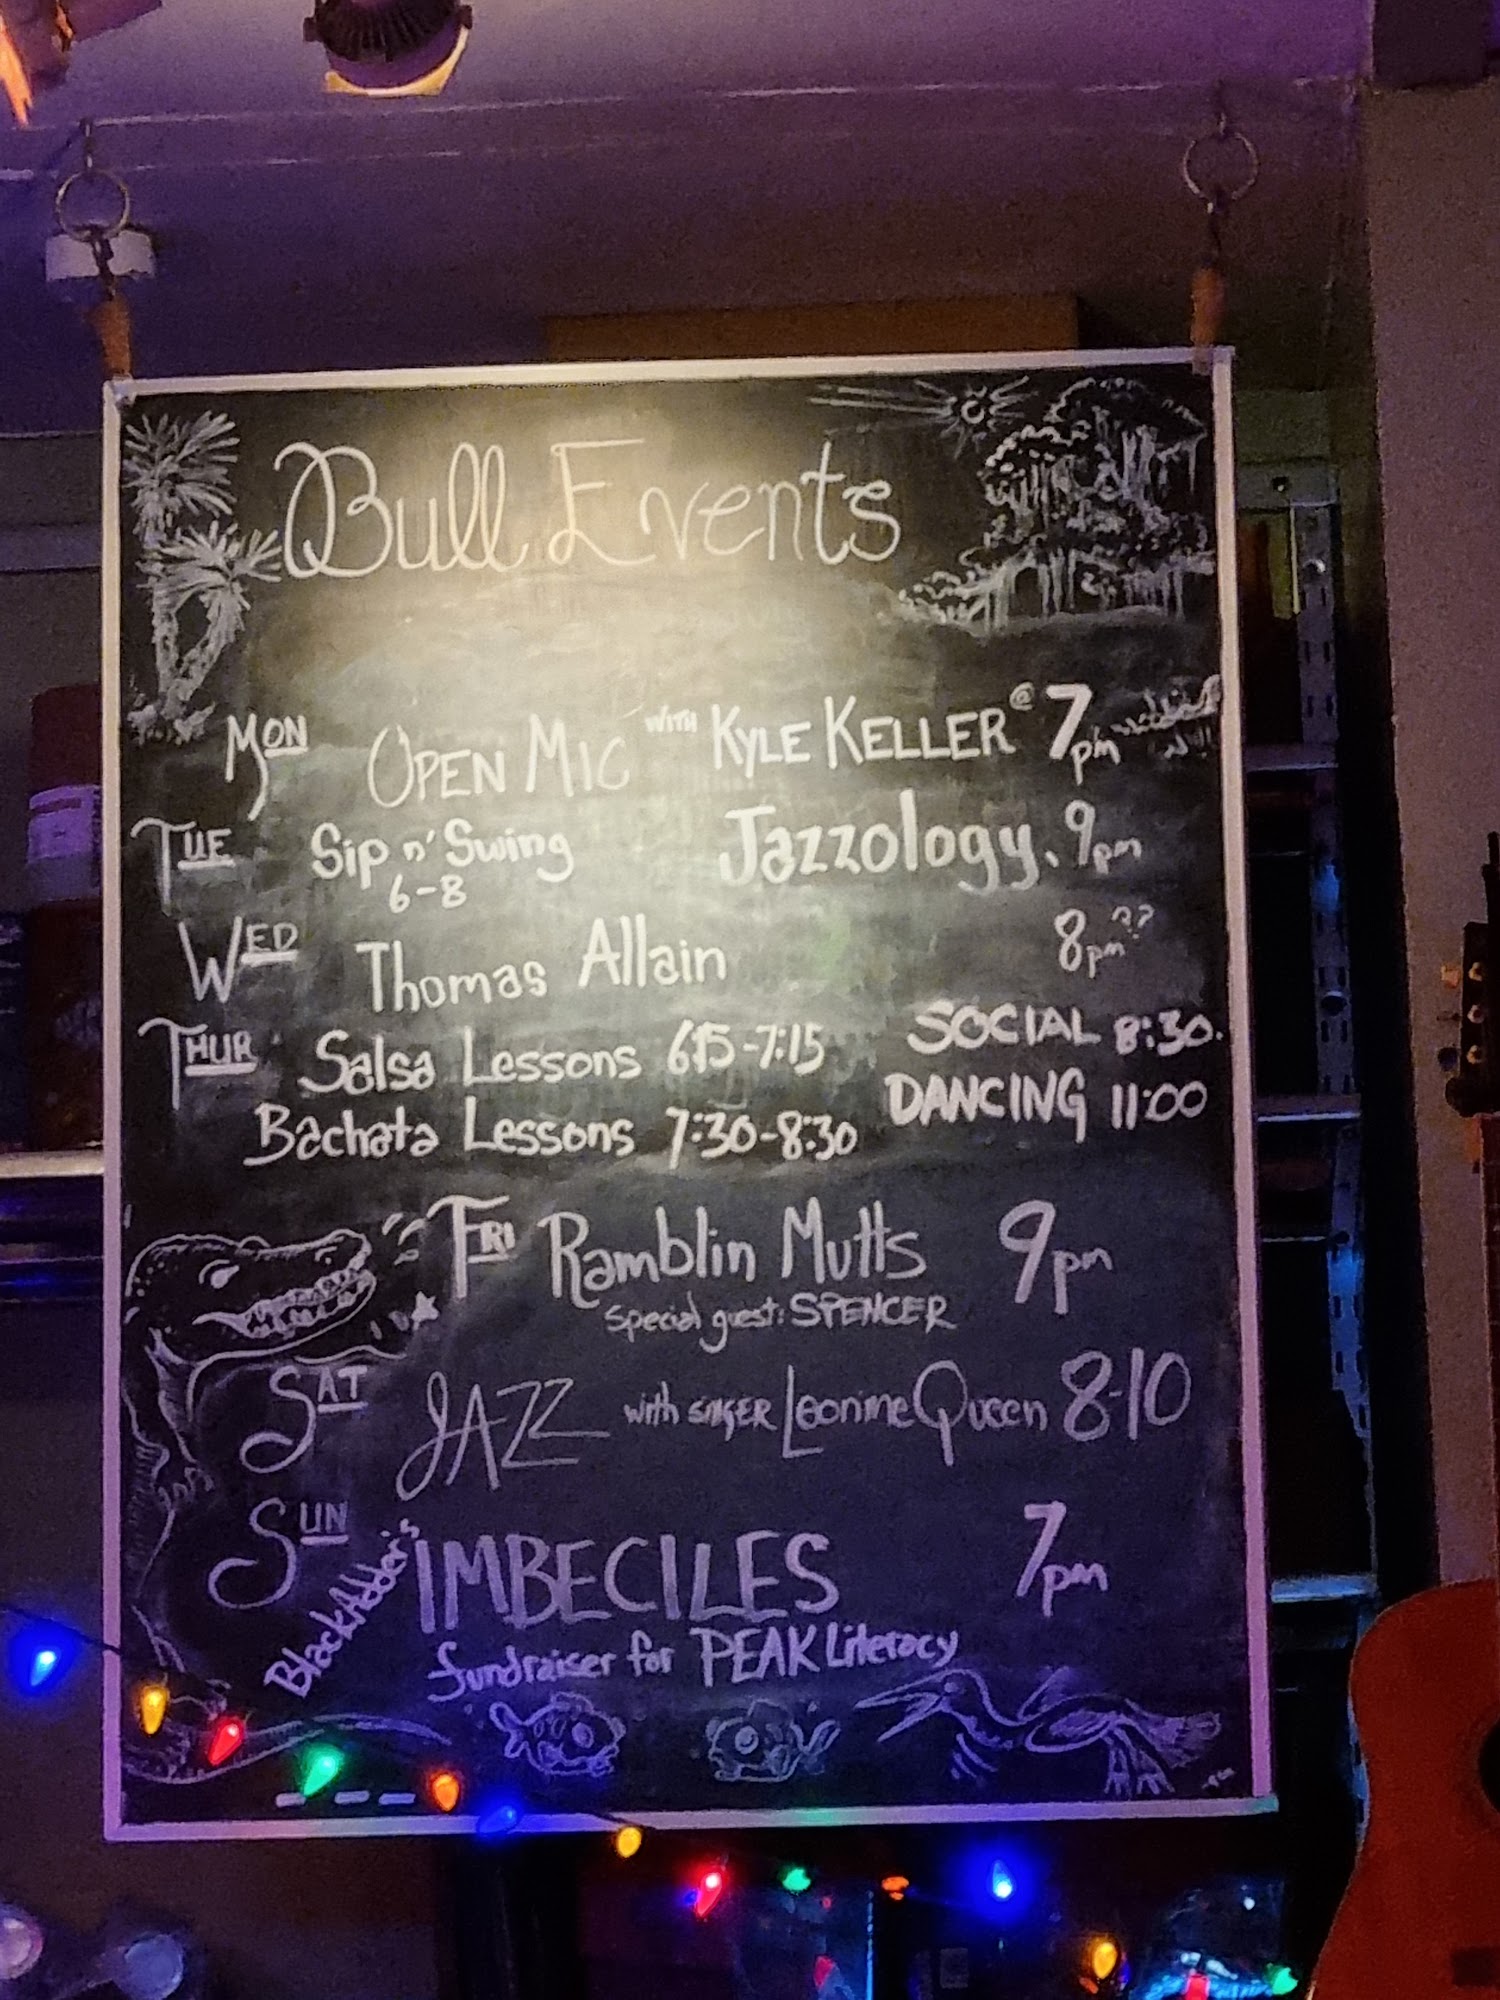 Bull Events
MON OPEN MIC WITH KYLE KELLER @ 7pm
TUE Sip n' Swing 6-8 Jazzology. 9pm
WED Thomas Allain 8pm??
THUR Salsa Lessons 615-7:15 SOCIAL 8:30.
Bachata Lessons 7:30-8:30 DANCING 11:00
FRI Ramblin Mutts 9pm
special guest: SPENCER
SAT JAZZ with SINGER Leonine Queen 8-10
SUN BlackAdder's IMBECILES 7pm
fundraiser for PEAK Literacy